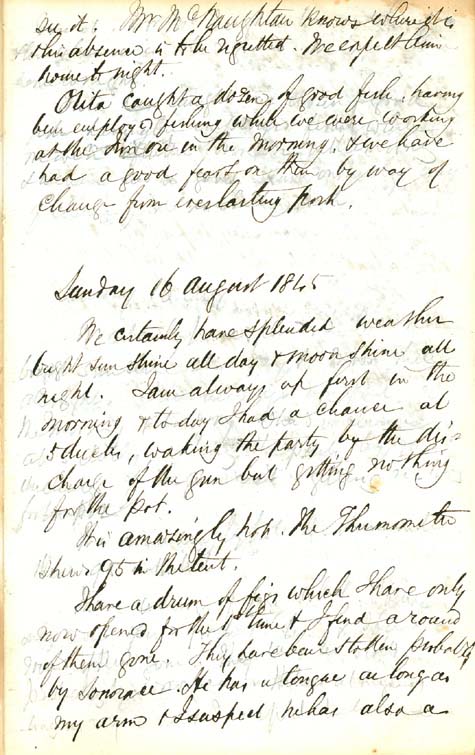 see it. Mr McNaughtan knows where it is
& his absence is to be regretted. We expect him
home to night.
Otita caught a dozen of good fish, having
been employed fishing while we were working
at the iron ore in the morning, & we have
had a good feast on them by way of
change from everlasting pork.
Sunday 16 August 1845
We certainly have splendid weather
bright sun shine all day & moon shine all
night. I am always up first in the
morning & to day I had a chance at
5 ducks, waking the party by the dis-
charge of the gun but getting nothing
for the pot.
It is amazingly hot. The Thermometer
shews 95 in the tent.
I have a drum of figs which I have only
now opened for the 1st time & I find a round
of them gone. They have been stolen probably
by . He has a tongue as long as
my arm & I suspect he has also a